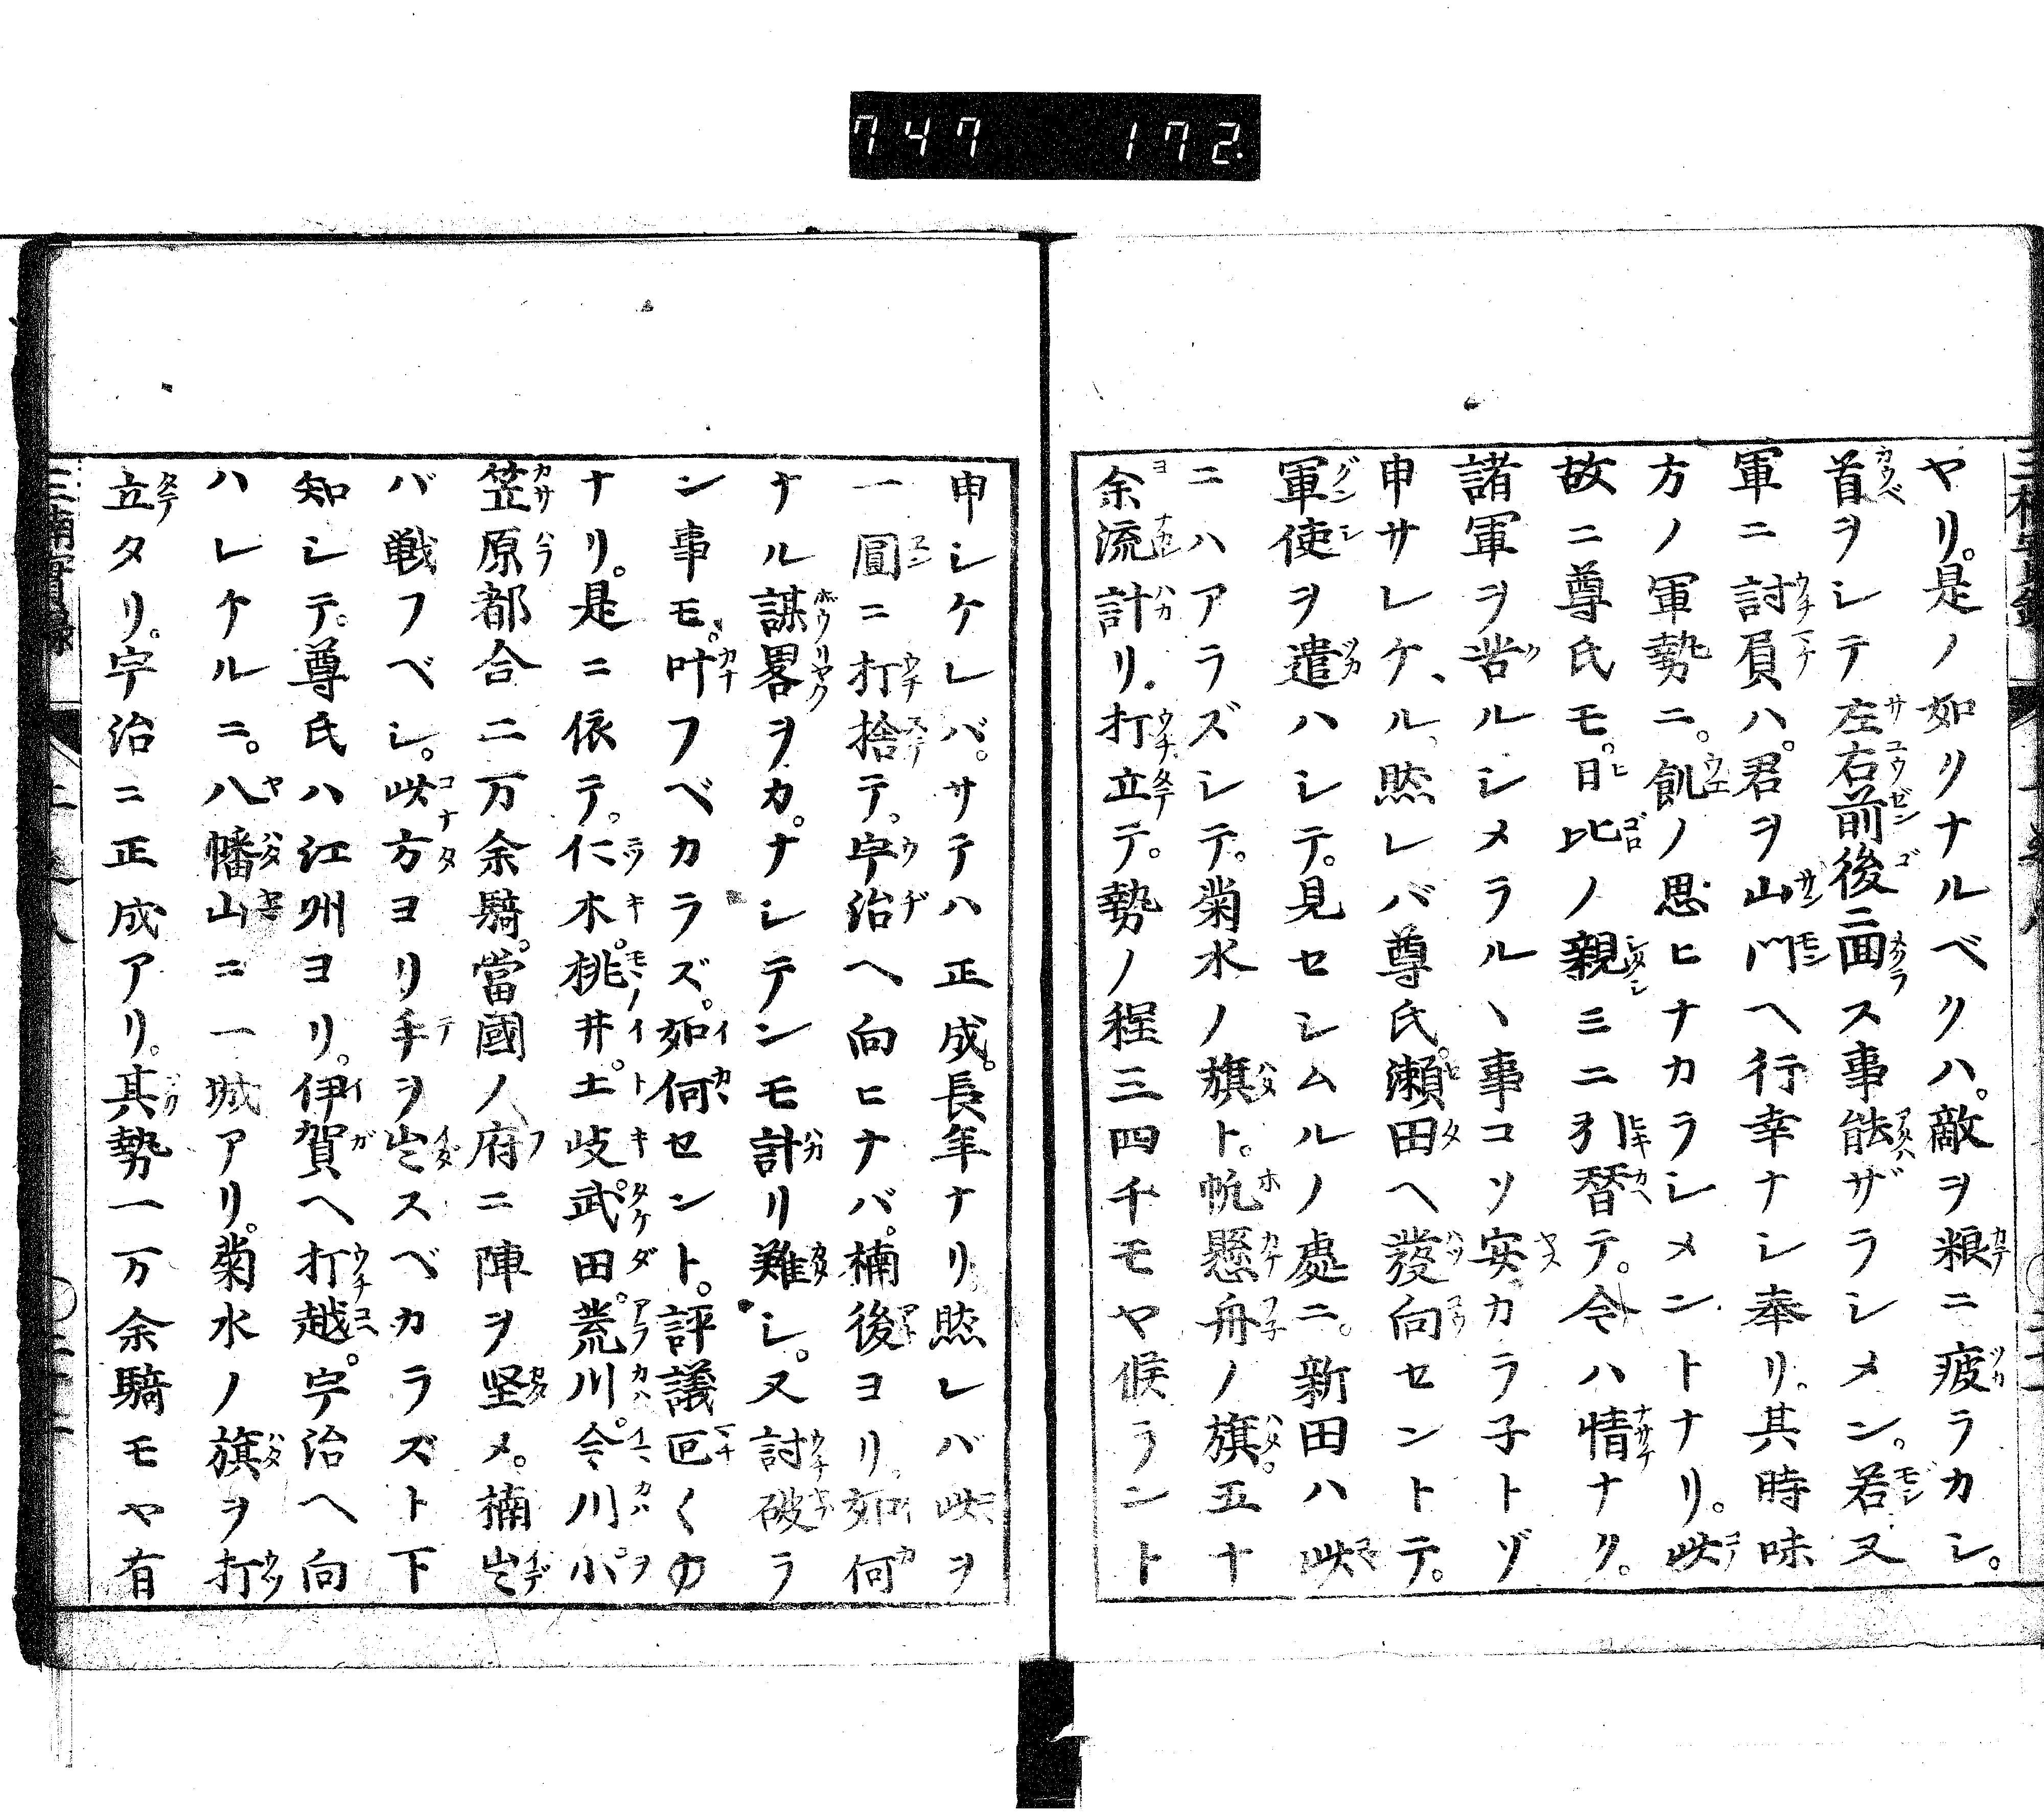 747 172.
ヤリ。是ノ如リナルベクハ。敵ヲ粮ニ疲ラカシ。
首ヲシテ左右前後ニ回ス事能ザラシメン。若又
軍ニ討負ハ。君ヲ山門ヘ行幸ナシ奉リ。其時味
方ノ軍勢ニ。飢ノ思ヒナカラシメントナリ。此
故ニ尊氏モ。日比ノ親ミニ引替テ。今ハ情ナク。
諸軍ヲ苦ルシメラルヽ事コソ安カラ子トゾ
申サレケル。㷊レバ尊氏。瀬田ヘ發向セントテ。
軍使ヲ遣ハシテ。見セシムルノ處ニ。新田ハ此
ニハアラズシテ。菊水ノ旗ト。帆懸舟ノ旗。五十
余流計リ。打立テ。勢ノ程三四千モヤ候ラント
申シケレバ。サテハ正成。長年ナリ。㷊レバ此ヲ
一圓ニ打捨テ。宇治ヘ向ヒナバ。楠後ヨリ。如何
ナル謀畧ヲカ。ナシテンモ計リ難シ。又討破ラ
ン事モ。叶フベカラズ。如何セント。評議区〱ナ
ナリ。是ニ依テ。仁木。桃井。土岐。武田。荒川。今川。小
笠原都合二万余騎。當國ノ府ニ陣ヲ堅メ。楠出
バ戦フベシ。此方ヨリ手ヲ出スベカラズト下
知シテ。尊氏ハ江州ヨリ。伊賀ヘ打越。宇治ヘ向
ハレケルニ。八幡山ニ一城アリ。菊水ノ旗ヲ打
立タリ。宇治ニ正成アリ。其勢一万余騎モヤ有